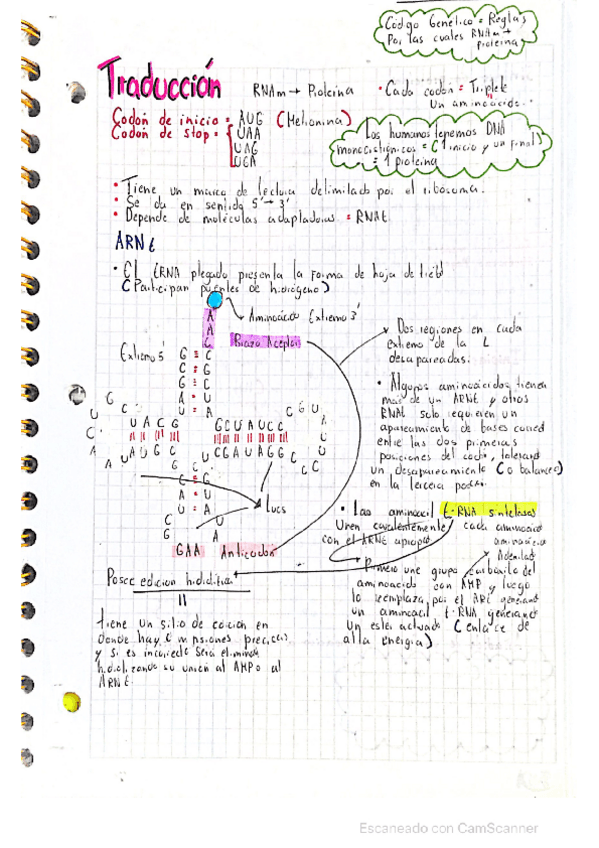 Código Genético = Reglas
Por las cuales RNAm →
proteina
Traducción
RNAm → Proteina
• Cada codon = Triplete
Un aminoacido.
Codon de inicio = AUG (Metionina)
Codon de stop = UAA
UAG
UGA
Los humanos tenemos DNA
monocistronicos = C 1 inicio y un final)
= 1 proteina
• Tiene un marco de lectura delimitado por el ribosoma.
• Se da en sentido 5' → 3'
• Depende de moléculas adaptadoras = RNAt
ARNt
• El tRNA plegado presenta la forma de hoja de trébol
(Participan puentes de hidrógeno)
Aminoacido Extremo 3'
Brazo Aceptor
Extremo 5'
• Dos regiones en cada
extremo de la L
desapareadas.
• Algunos aminoácidos tienen
mas de un ARNt y otros
RNAt solo requieren un
apareamiento de bases
entre las dos primeras
posiciones del codon, tolerando
un desapareamiento (o balanceo)
en la tercera
UACG
GCUAUCC
AUGC
CGAUAGG
Lucs
GAA Anticodon
• Las aminoacil t-RNA sintetasas
Unen covalentemente cada aminoacido
con el ARNt apropiado
aminoacido
Adenilado
Primero une grupo carboxilo del
aminoacido con AMP y luego
lo reemplaza por el ARNt generando
un aminoacil t-RNA generando
Un ester activado (enlace de
alta energia)
Posee edicion hidrolitica
tiene un sitio de edición en
donde hay
y si es incorrecto será
hidrolizando su unión al AMP o al
ARNt.
Escaneado con CamScanner